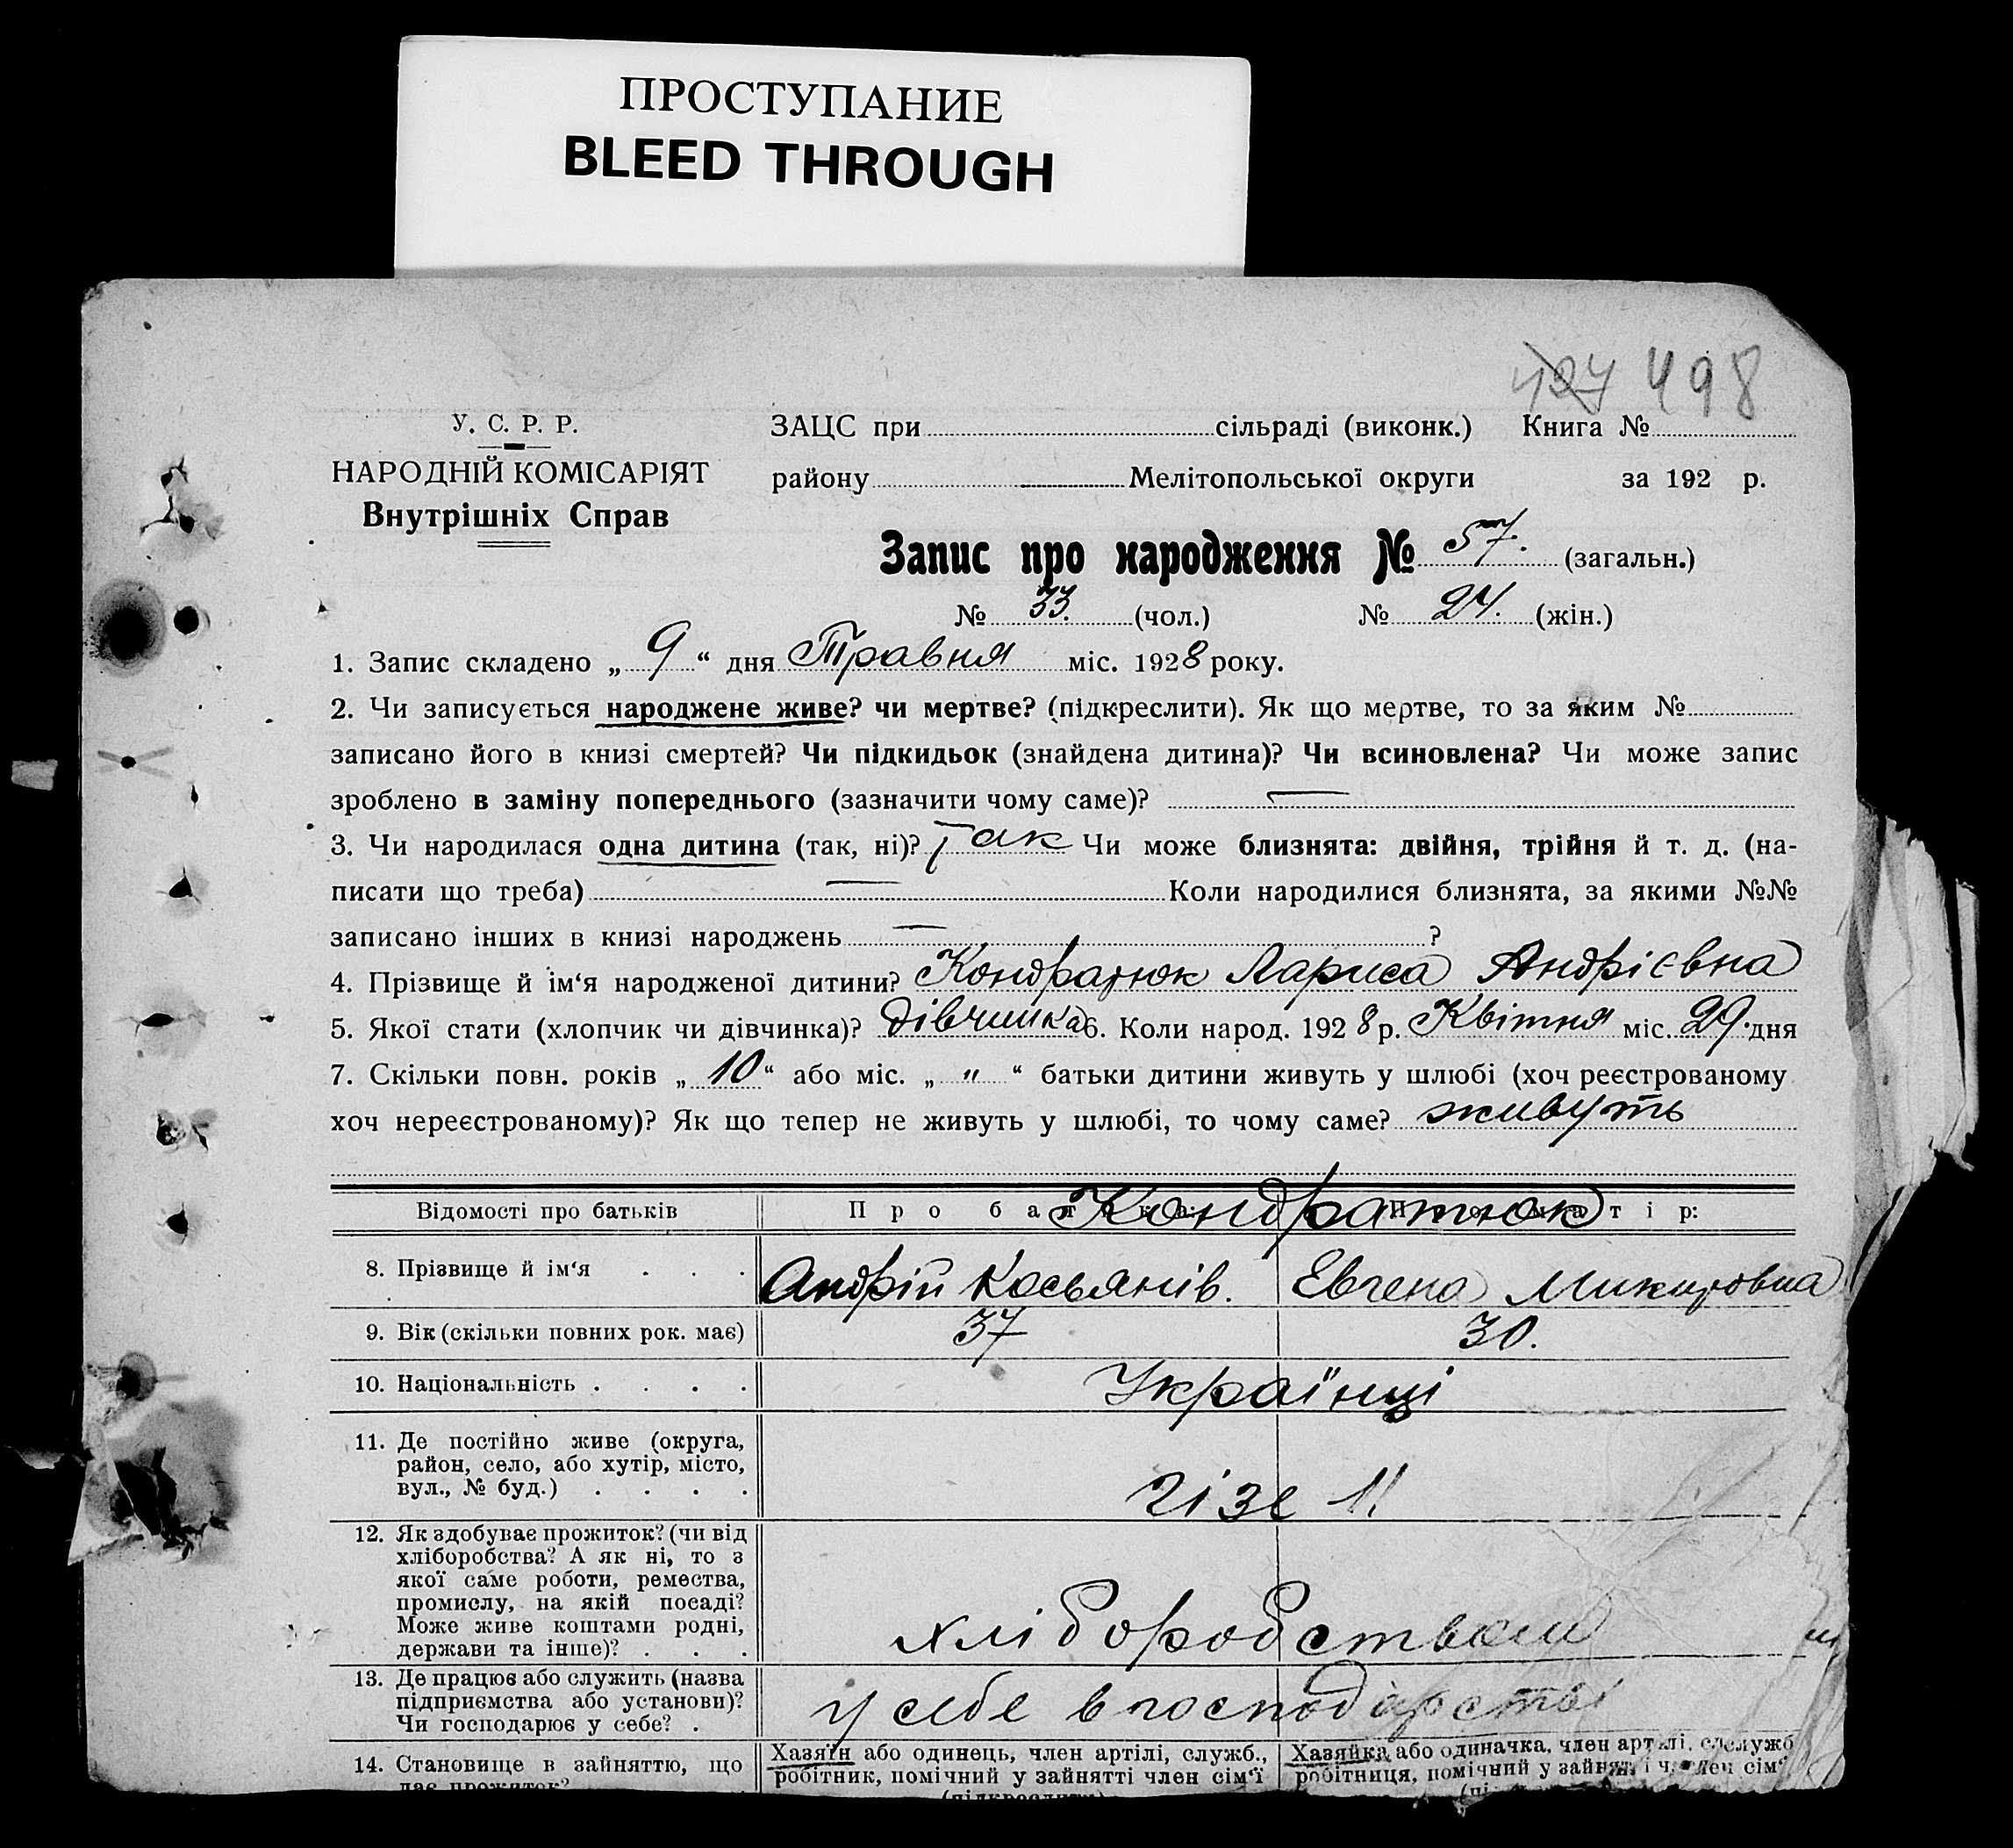 ПРОСТУПАНИЕ
BLEED THROUGH
427 498
У. С. Р. Р.
НАРОДНІЙ КОМІСАРІЯТ
Внутрішніх Справ
ЗАЦС при сільраді (виконк.) Книга №
району Мелітопольської округи за 192 р.
Запис про народження № 57. (загальн.)
№ 33. (чол.) № 24. (жін.)
1. Запис складено „ 9 “ дня Травня міс. 1928 року.
2. Чи записується народжене живе? чи мертве? (підкреслити). Як що мертве, то за яким №
записано його в книзі смертей? Чи підкидьок (знайдена дитина)? Чи всиновлена? Чи може запис
зроблено в заміну попереднього (зазначити чому саме)? —
3. Чи народилася одна дитина (так, ні)? Так Чи може близнята: двійня, трійня й т. д. (на-
писати що треба) — Коли народилися близнята, за якими №№
записано інших в книзі народжень — ?
4. Прізвище й ім‘я народженої дитини? Кондратюк Лариса Андрієвна
5. Якої стати (хлопчик чи дівчинка)? Дівчинка 6. Коли народ. 1928 р. Квітня міс. 29. дня
7. Скільки повн. років „ 10 “ або міс. „ " “ батьки дитини живуть у шлюбі (хоч реєстрованому
хоч нереєстрованому)? Як що тепер не живуть у шлюбі, то чому саме? живуть
Відомості про батьків Про батька: Про матір:
Кондратюк
8. Прізвище й ім‘я . . . Андрій Касьянів. Евгена Микитовна
9. Вік (скільки повних рок. має) 37 30.
10. Національність . . . . Українці
11. Де постійно живе (округа,
район, село, або хутір, місто,
вул., № буд.) . . . .
12. Як здобуває прожиток? (чи від
хліборобства? А як ні, то з
якої саме роботи, ремества,
промислу, на якій посаді?
Може живе коштами родні,
держави та інше)? . . .
хліборобством
13. Де працює або служить (назва
підприємства або установи)?
Чи господарює у себе? .
у себе в господарстві
14. Становище в зайняттю, що
дає прожиток?
Хазяїн або одинець, член артілі, служб.,
робітник, помічний у зайнятті член сім‘ї
(підкреслити)
Хазяйка або одиначка, член артілі, служб
робітниця, помічний у зайнят. і член сім‘